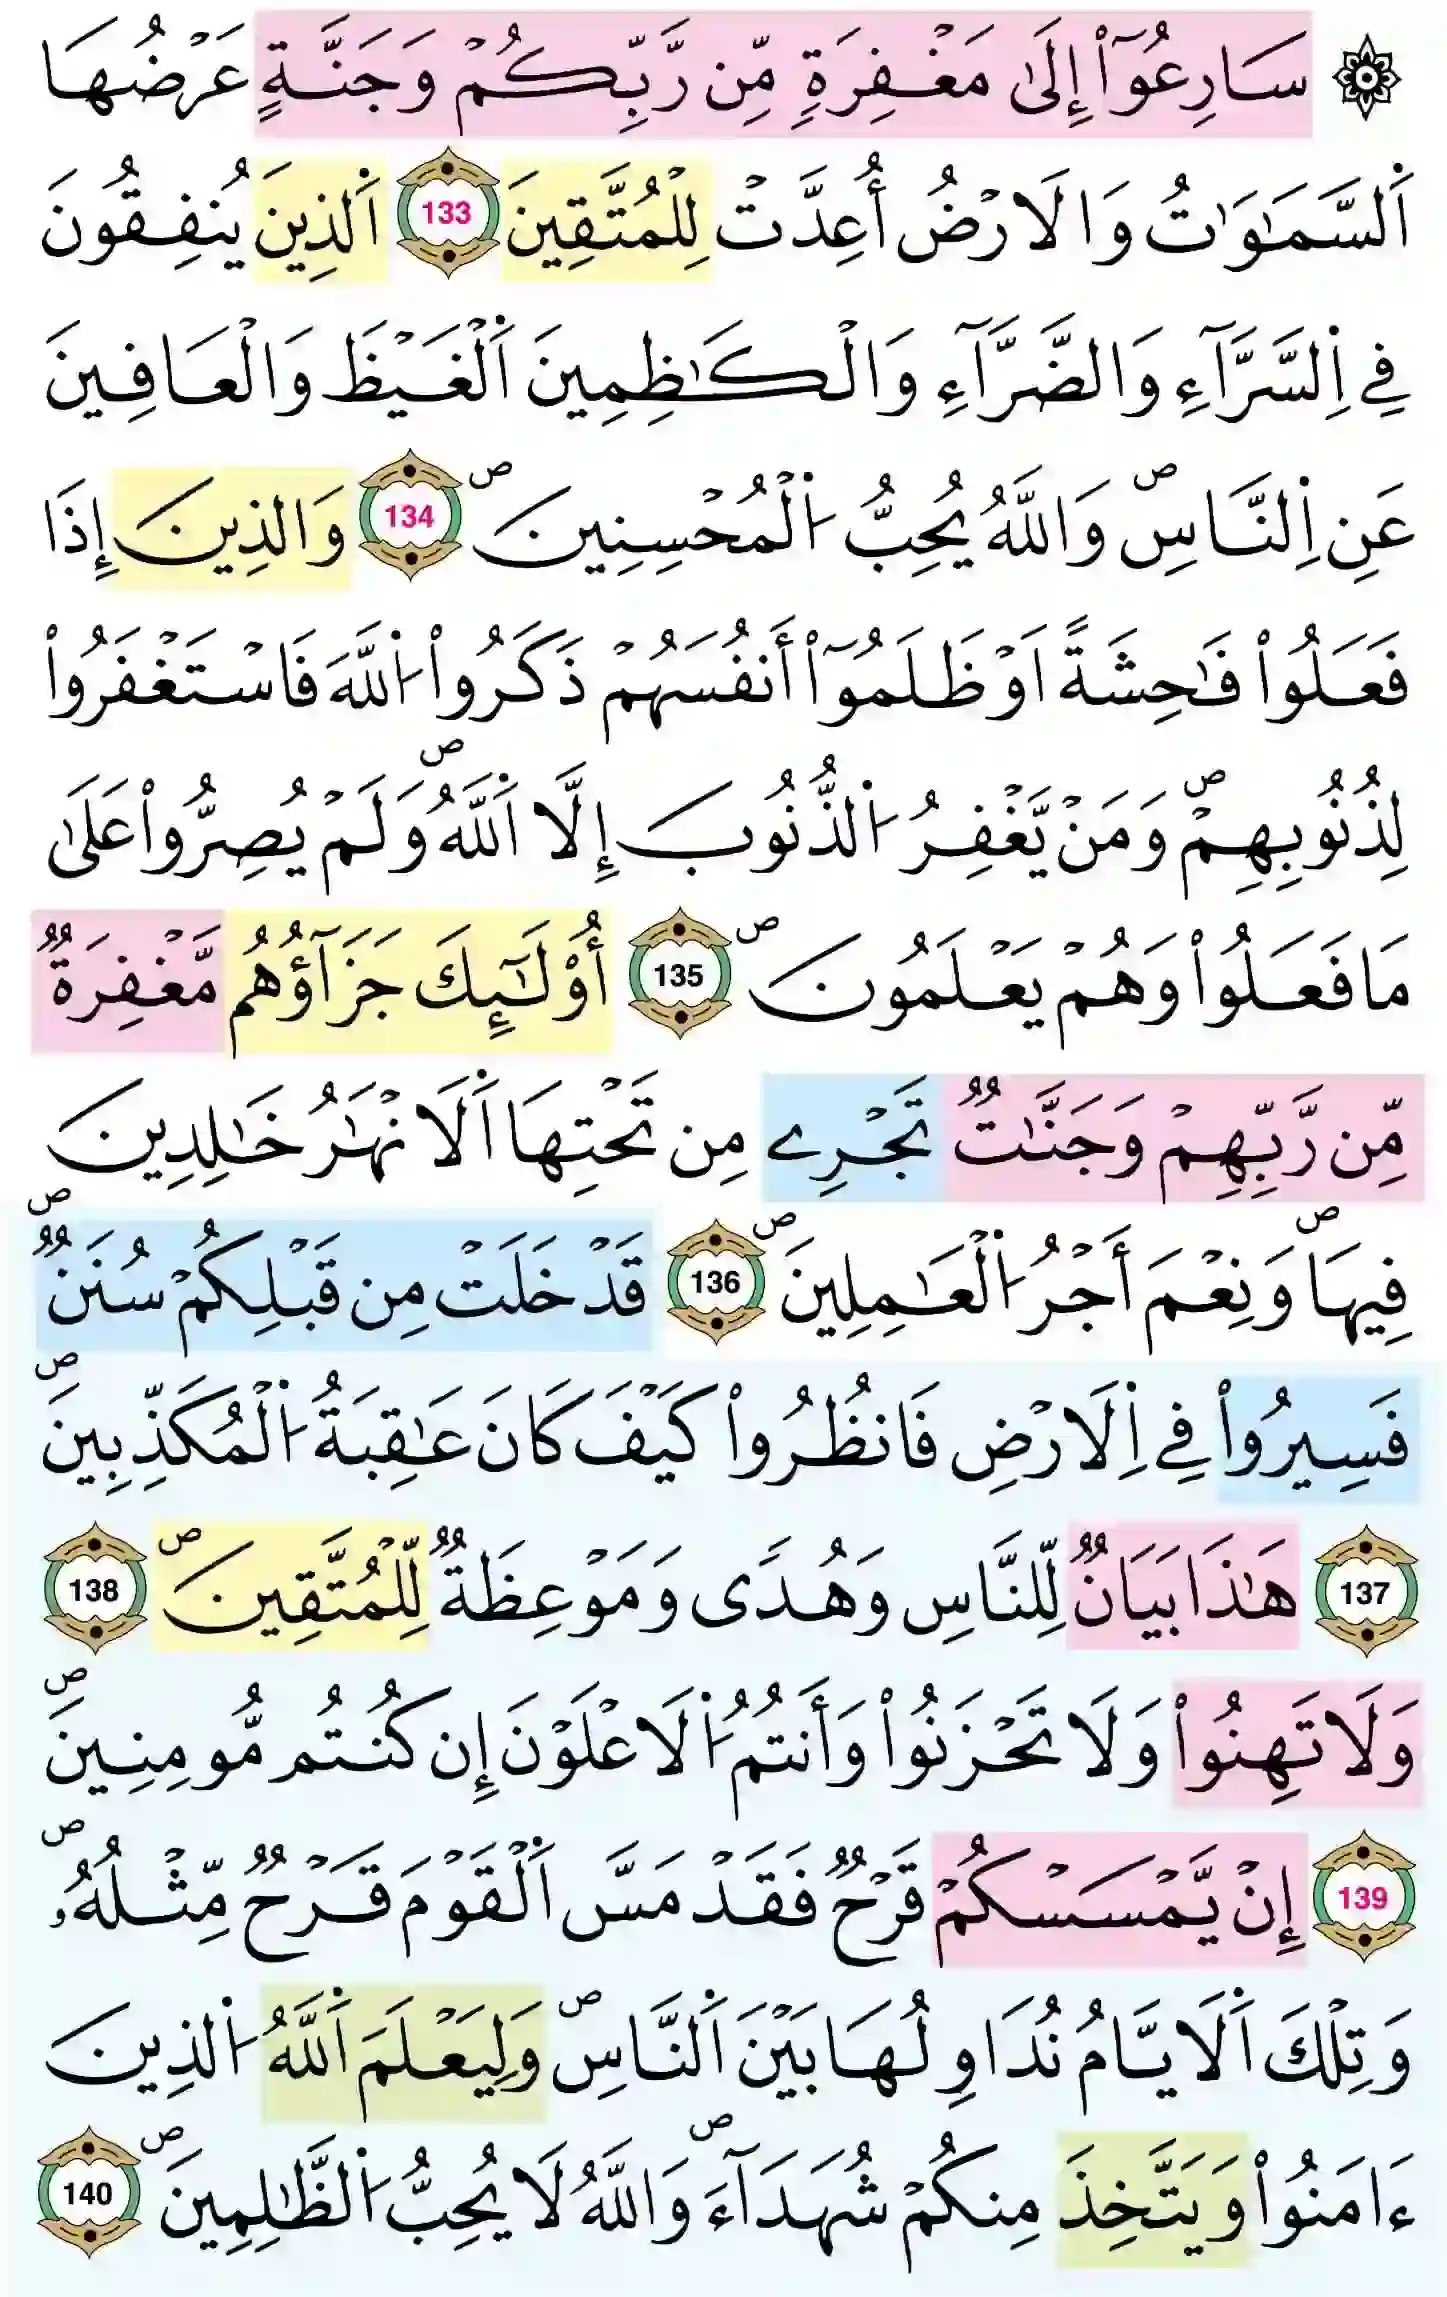 ۞ سَارِعُوٓاْ إِلَىٰ مَغْفِرَةٖ مِّن رَّبِّكُمْ وَجَنَّةٍ عَرْضُهَا
اَ۬لسَّمَٰوَٰتُ وَالَارْضُ أُعِدَّتْ لِلْمُتَّقِينَ 133 اَ۬لذِينَ يُنفِقُونَ
فِے اِ۬لسَّرَّآءِ وَالضَّرَّآءِ وَالْكَٰظِمِينَ اَ۬لْغَيْظَ وَالْعَافِينَ
عَنِ اِ۬لنَّاسِۖ وَاللَّهُ يُحِبُّ اُ۬لْمُحْسِنِينَۖ 134 وَالذِينَ إِذَا
فَعَلُواْ فَٰحِشَةً اَوْ ظَلَمُوٓاْ أَنفُسَهُمْ ذَكَرُواْ اُ۬للَّهَ فَاسْتَغْفَرُواْ
لِذُنُوبِهِمْۖ وَمَنْ يَّغْفِرُ اُ۬لذُّنُوبَ إِلَّا اَ۬للَّهُۖ وَلَمْ يُصِرُّواْ عَلَىٰ
مَا فَعَلُواْ وَهُمْ يَعْلَمُونَۖ 135 أُوْلَٰٓئِكَ جَزَآؤُهُم مَّغْفِرَةٞ
مِّن رَّبِّهِمْ وَجَنَّٰتٞ تَجْرِے مِن تَحْتِهَا اَ۬لَانْهَٰرُ خَٰلِدِينَ
فِيهَاۖ وَنِعْمَ أَجْرُ اُ۬لْعَٰمِلِينَۖ 136 قَدْ خَلَتْ مِن قَبْلِكُمْ سُنَنٞۖ
فَسِيرُواْ فِے اِ۬لَارْضِ فَانظُرُواْ كَيْفَ كَانَ عَٰقِبَةُ اُ۬لْمُكَذِّبِينَۖ
137 هَٰذَا بَيَانٞ لِّلنَّاسِ وَهُدٗى وَمَوْعِظَةٞ لِّلْمُتَّقِينَۖ 138
وَلَا تَهِنُواْ وَلَا تَحْزَنُواْ وَأَنتُمُ اُ۬لَاعْلَوْنَ إِن كُنتُم مُّومِنِينَۖ
139 إِنْ يَّمْسَسْكُمْ قَرْحٞ فَقَدْ مَسَّ اَ۬لْقَوْمَ قَرْحٞ مِّثْلُهُۥۖ
وَتِلْكَ اَ۬لَايَّامُ نُدَاوِلُهَا بَيْنَ اَ۬لنَّاسِۖ وَلِيَعْلَمَ اَ۬للَّهُ اُ۬لذِينَ
ءَامَنُواْ وَيَتَّخِذَ مِنكُمْ شُهَدَآءَۖ وَاللَّهُ لَا يُحِبُّ اُ۬لظَّٰلِمِينَۖ 140